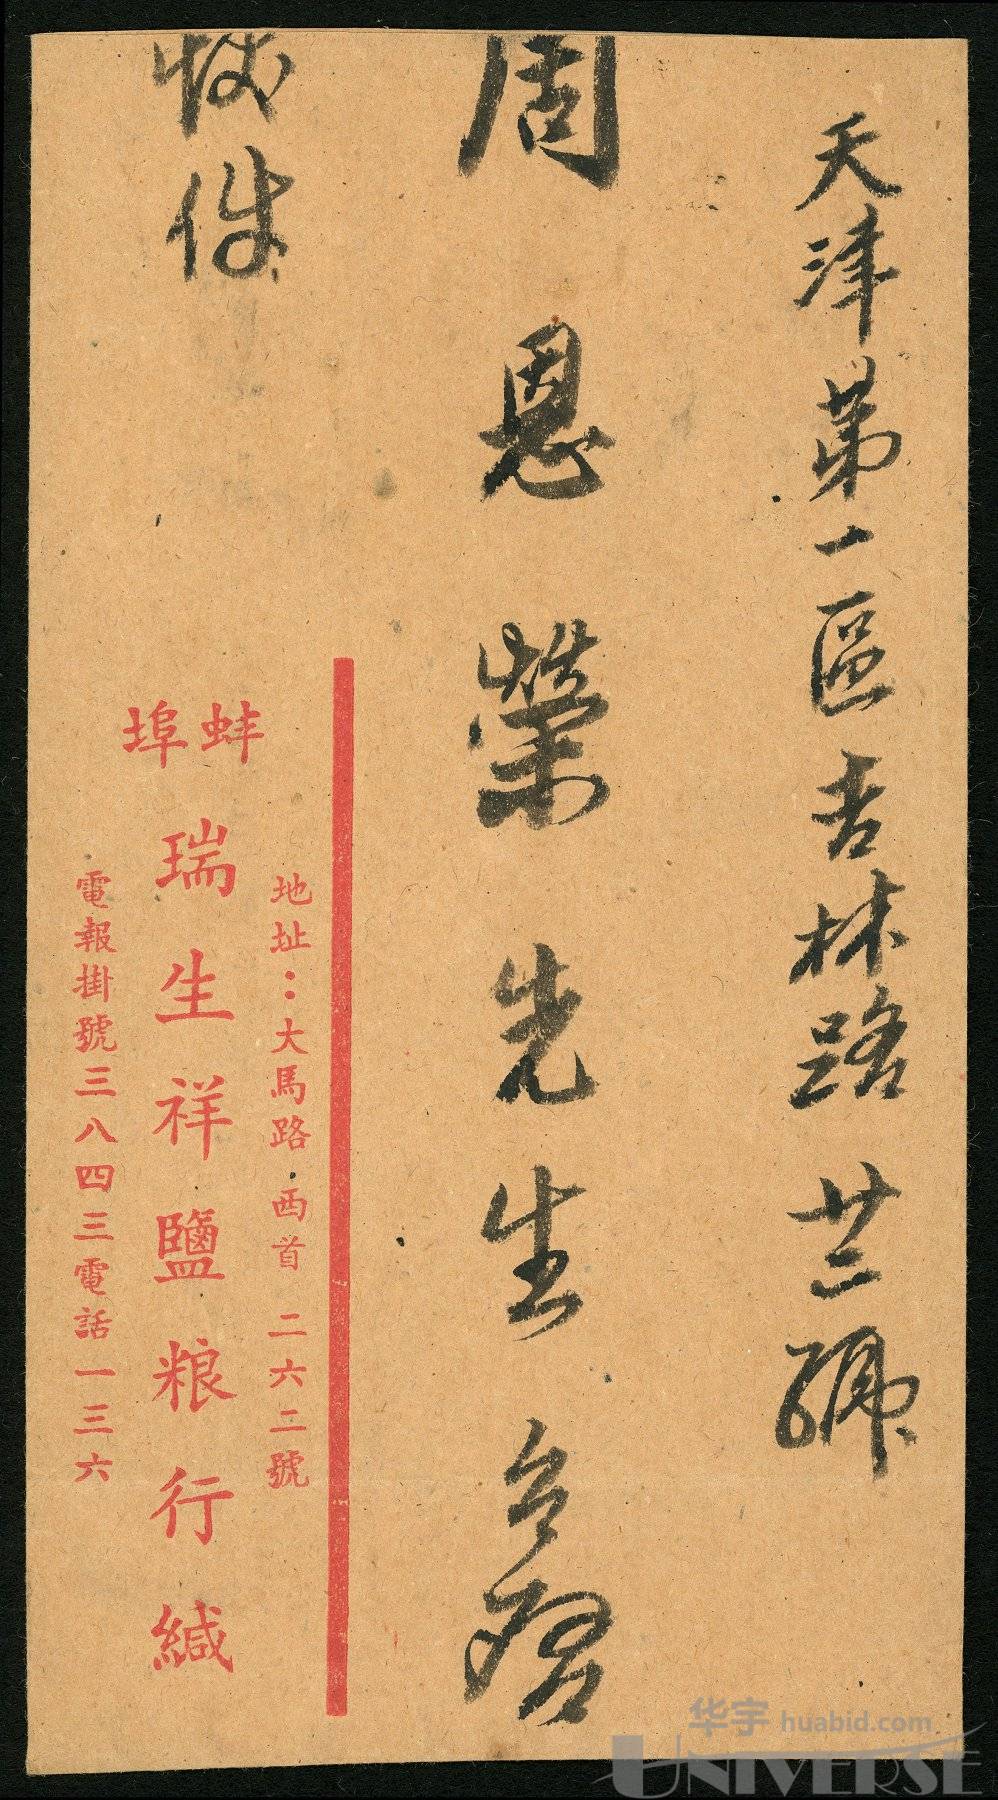 天津第一區吉林路廿二號
周恩榮先生台啓
快件
地址：大馬路西首 二六二號
蚌埠
瑞生祥鹽粮行緘
電報掛號三八四三電話一三六
华宇 huabid.com
UNIVERSE